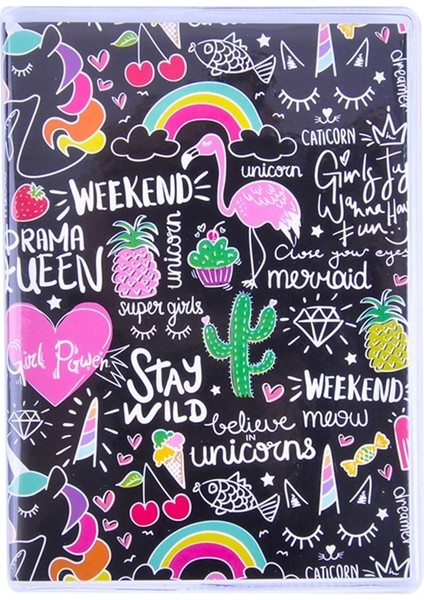 dreamer
CATICORN
unicorn
Girls Ju
Wanna Ha
Fun
WEEKEND
unicorn
DRAMA
QUEEN
Close your eyes
mermaid
super girls
Girl Power
STAY
WILD
WEEKEND
believe
meow
IN
unicorns
dreamer
CATICORN